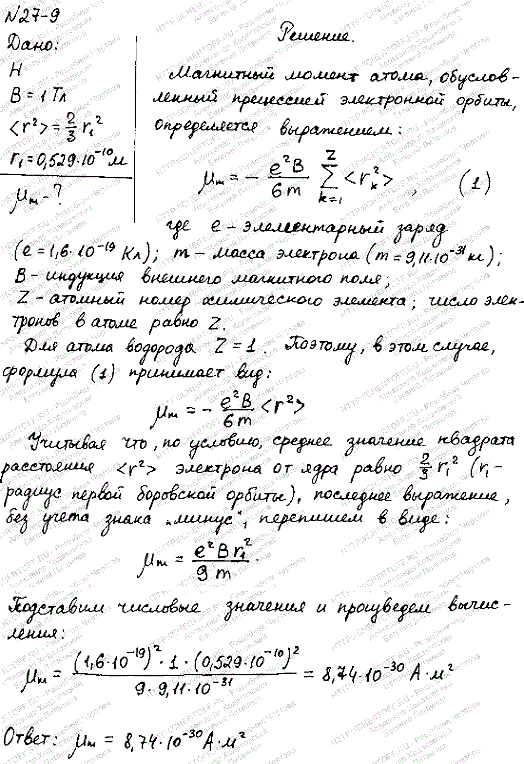 №27-9
Дано:
H
B = 1 Тл
<r²> = 2/3 r₁²
r₁ = 0,529·10⁻¹⁰ м
μₘ - ?
Решение.
Магнитный момент атома, обуслов-
ленный прецессией электронной орбиты,
определяется выражением:
μₘ = - e²B/6m Σ_{k=1}^{Z} <r_k²> , (1)
где e - элементарный заряд
(e = 1,6·10⁻¹⁹ Кл); m - масса электрона (m = 9,11·10⁻³¹ кг);
B - индукция внешнего магнитного поля;
Z - атомный номер химического элемента; число элек-
тронов в атоме равно Z.
Для атома водорода Z = 1. Поэтому, в этом случае,
формула (1) принимает вид:
μₘ = - e²B/6m <r²>
Учитывая что, по условию, среднее значение квадрата
расстояния <r²> электрона от ядра равно 2/3 r₁² (r₁ -
радиус первой боровской орбиты), последнее выражение,
без учета знака „минус“, перепишем в виде:
μₘ = e²Br₁²/9m .
Подставим числовые значения и произведем вычис-
ления:
μₘ = (1,6·10⁻¹⁹)²·1·(0,529·10⁻¹⁰)²/9·9,11·10⁻³¹ = 8,74·10⁻³⁰ А·м²
Ответ: μₘ = 8,74·10⁻³⁰ А·м²